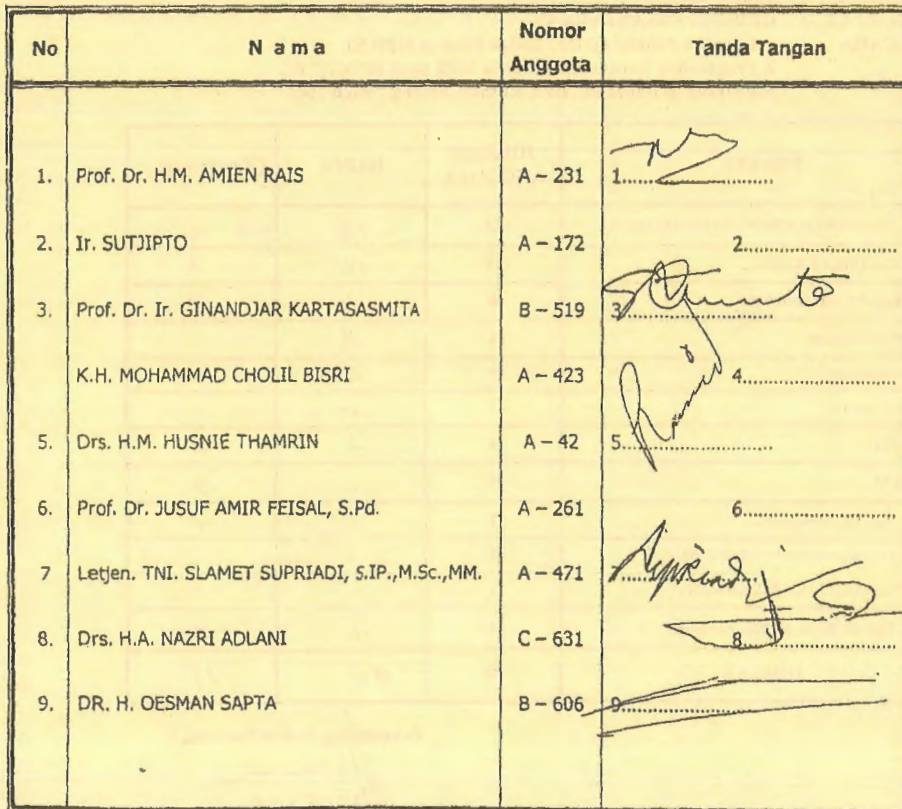 No N a m a Nomor Anggota Tanda Tangan
1. Prof. Dr. H.M. AMIEN RAIS A – 231 1....................
2. Ir. SUTJIPTO A – 172 2....................
3. Prof. Dr. Ir. GINANDJAR KARTASASMITA B – 519 3....................
K.H. MOHAMMAD CHOLIL BISRI A – 423 4....................
5. Drs. H.M. HUSNIE THAMRIN A – 42 5....................
6. Prof. Dr. JUSUF AMIR FEISAL, S.Pd. A – 261 6....................
7 Letjen. TNI. SLAMET SUPRIADI, S.IP.,M.Sc.,MM. A – 471 7....................
8. Drs. H.A. NAZRI ADLANI C – 631 8....................
9. DR. H. OESMAN SAPTA B – 606 9....................